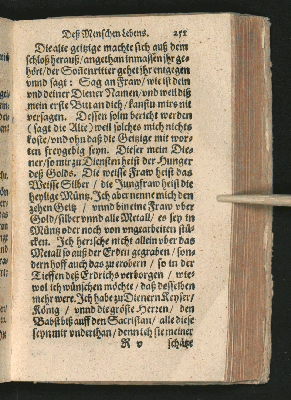 Deß Menschen Lebens. 251
Die alte geitzige machte sich auß dem
schloß herauß / angethan inmassen ihr ge-
hört / der Soñenritter gehet ihr entgegen
vnnd sagt: Sag an Fraw / wie ist dein
vnd deiner Diener Namen / vnd weil diß
mein erste Bitt an dich / kanstu mirs nit
versagen. Dessen soltu bericht werden
(sagt die Alte) weil solches mich nichts
kostet / vnd ohn daß die Geitzige mit wor-
ten freygebig seyn. Dieser mein Die-
ner / so mir zu Diensten heist der Hunger
deß Golds. Die weisse Fraw heist das
Weisse Silber / die Jungfraw heist die
heylige Müntz. Ich aber nenne mich den
zehen Geitz / vnnd bin eine Fraw vber
Gold / silber vnnd alle Metall / es sey in
Müntz oder noch von vngearbeiten stü-
cken. Ich hersche nicht allein vber das
Metall so auß der Erden gegraben / son-
dern hoff auch das zu erobern / so in der
Tieffen deß Erdrichs verborgen / wie-
wol ich wünschen möchte / daß desselben
mehr were. Ich habe zu Dienern Keyser /
König / vnnd die gröste Herren / den
Babst biß auff den Sacristan / alle diese
seyn mir vnderthan / denn ich sie meiner
R v schätze